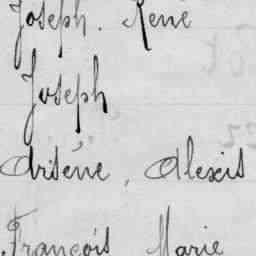 Joseph. René
Joseph
Arsène, Alexis
François Marie